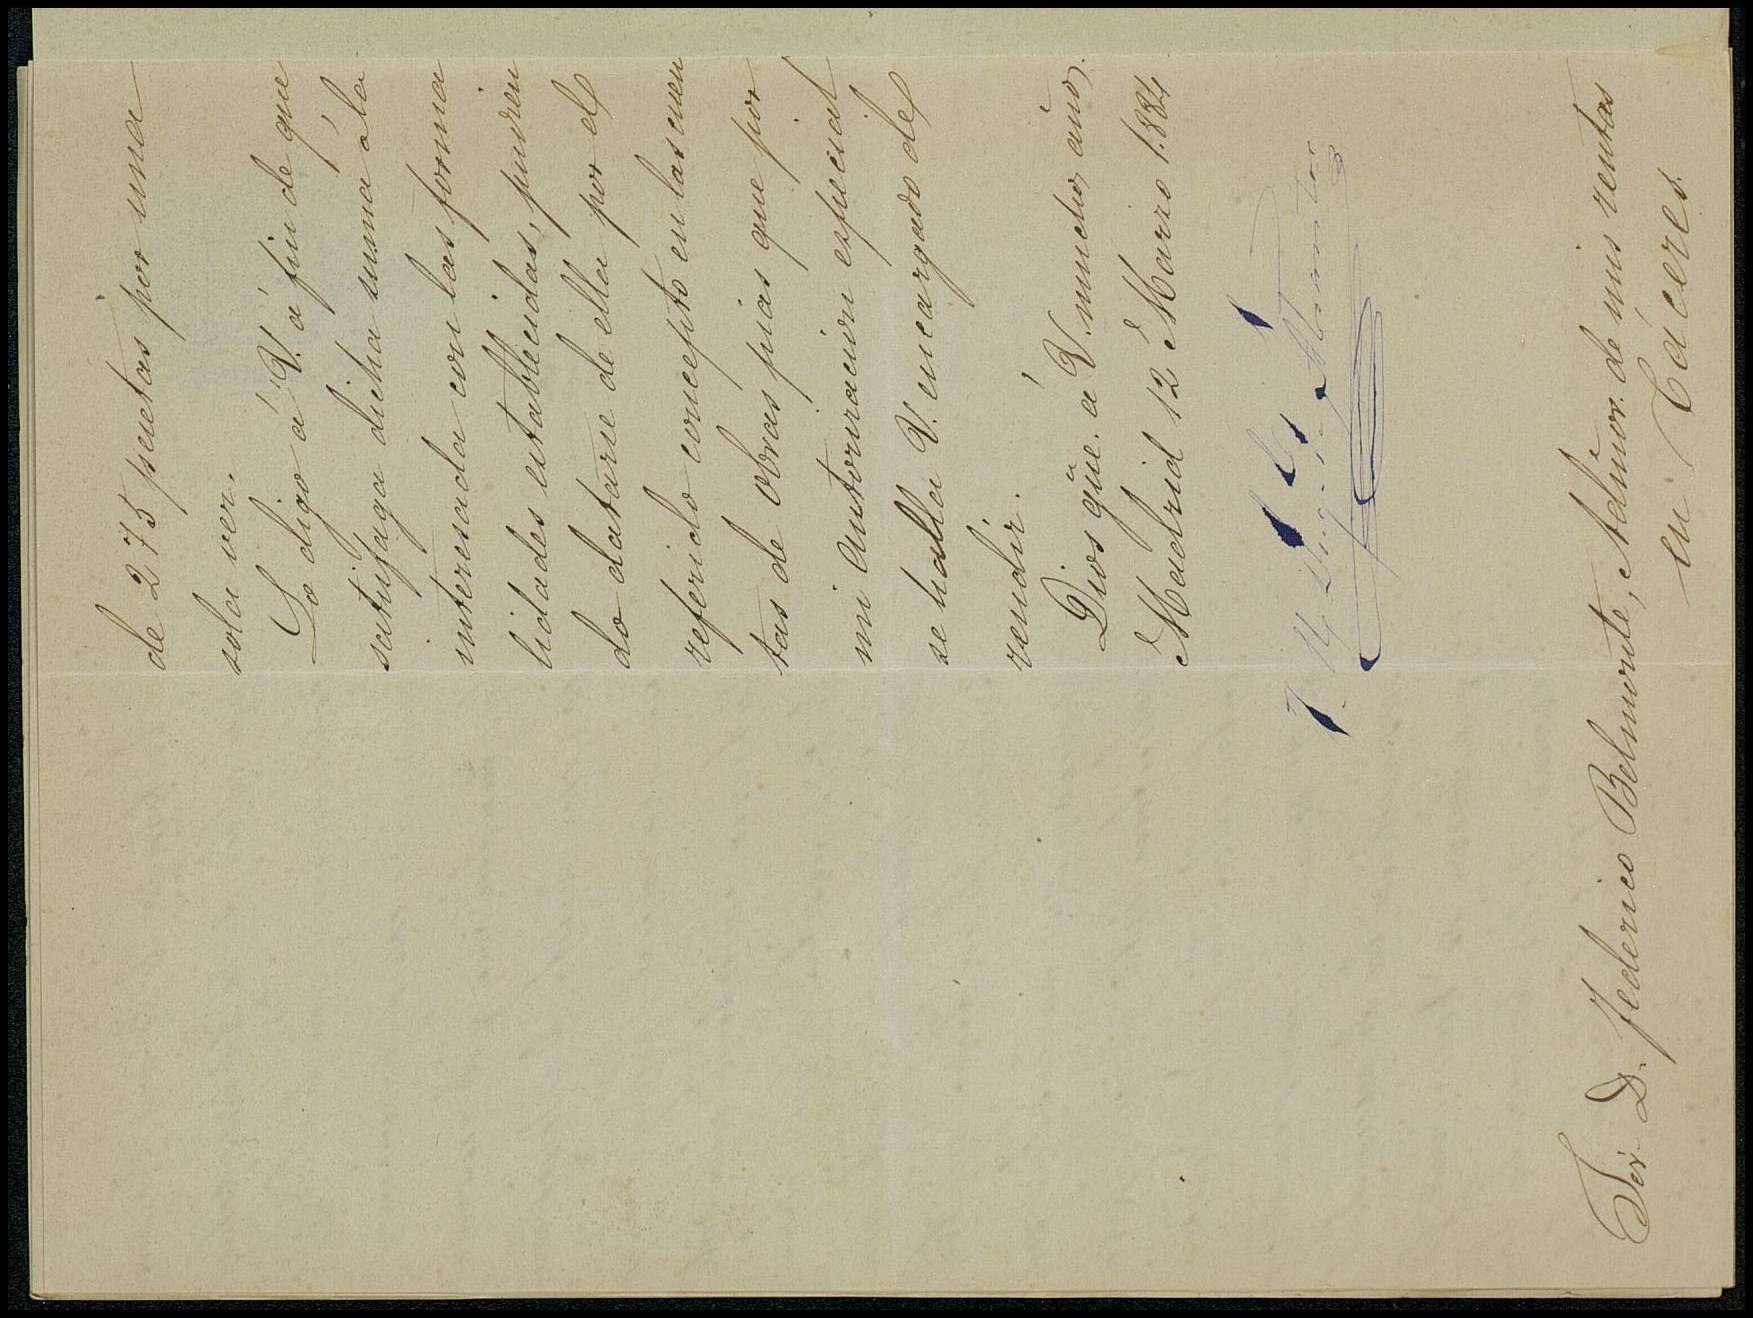 de 275 pesetas por una
sola vez.
Lo digo á V. á fin de que
satisfaga dicha suma á la
interesada con las forma
lidades establecidas, pudien
do datarse de ella por el
referido concepto en las cuen
tas de Obras pias que por
mi autorizacion especial
se halla V. encargado de
rendir.
Dios gūe. á V. muchos años.
Madrid 12 Marzo 1.884
El Duque de Abrantes
Sor. D. Federico Belmonte, Admōr. de mis rentas
en Cáceres.